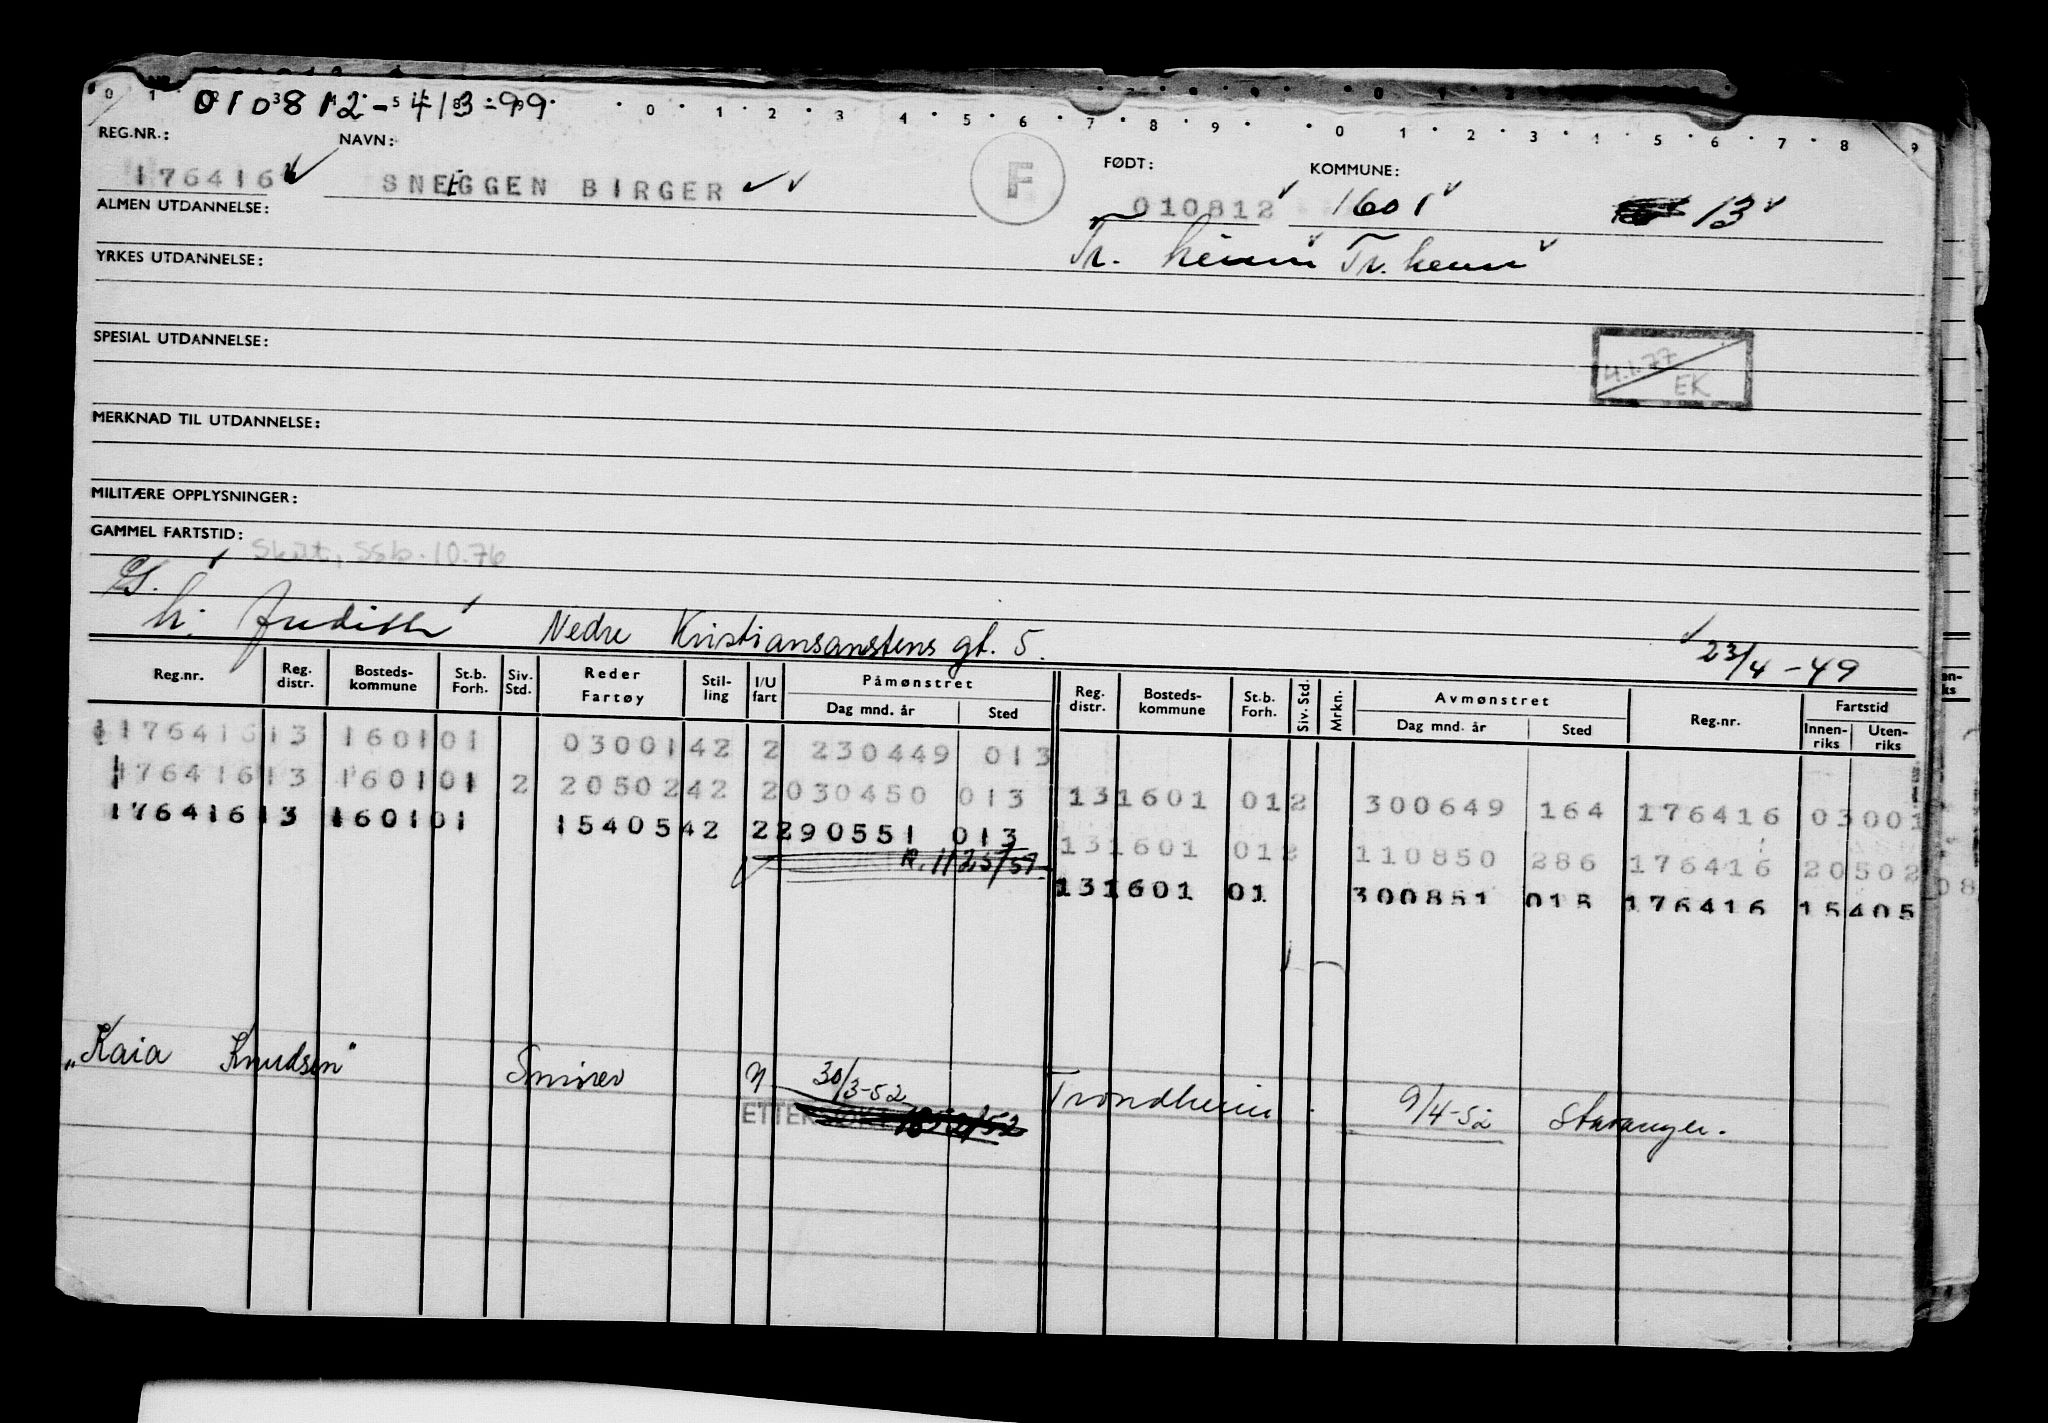 010812-41399
REG.NR.: NAVN: FØDT: KOMMUNE:
176416 SNEGGEN BIRGER F 010812 1601 13
ALMEN UTDANNELSE:
Tr. heim Tr. heim
YRKES UTDANNELSE:
SPESIAL UTDANNELSE:
4.1.77
EK
MERKNAD TIL UTDANNELSE:
MILITÆRE OPPLYSNINGER:
GAMMEL FARTSTID:
Slutt, SSb. 10.76
G.
h. Judith Nedre Kristiansanstens gt. 5. 23/4-49
Reg.nr. Reg. distr. Bosteds-kommune St.b. Forh. Siv. Std. Reder Fartøy Stil-ling I/U fart Påmønstret Dag mnd. år Sted Reg. distr. Bosteds-kommune St.b. Forh. Siv. Std. Mrkn. Avmønstret Dag mnd. år Sted Reg.nr. Fartstid Innen-riks Uten-riks
176416 13 1601 01 03001 42 2 230449 013
176416 13 1601 01 2 20502 42 2 030450 013 13 1601 01 2 300649 164 176416 03001
176416 13 1601 01 15405 42 2 290551 013 13 1601 01 2 110850 286 176416 20502 08
R. 1125/51 13 1601 01 300851 015 176416 15405
"Kaia Knudsen" Smører N 30/3-52 Trondheim 9/4-52 Stavanger.